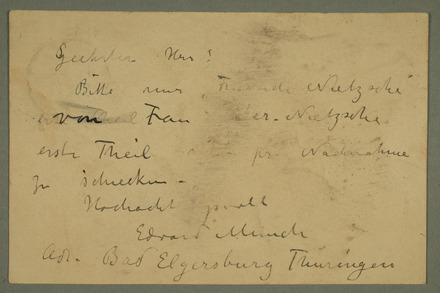 Geehrter Herr!
Bitte mir Freunde Nietzsche
von Frau Nietzsche
erste Theil pr Nachnahme
zu schicken –
Hochachtungsvoll
Edvard Munch
Adr. Bad Elgersburg Thuringen